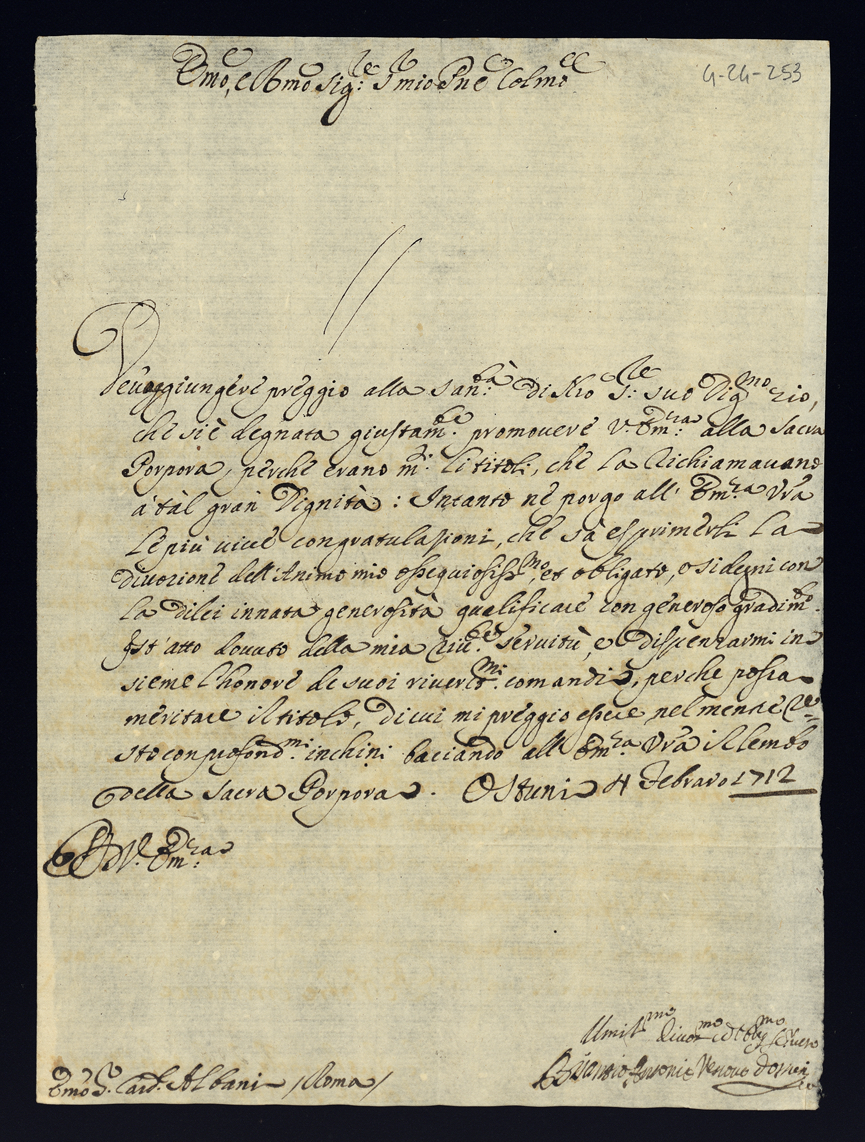 Emo, e Rmo Sig:re S mio Pne Colmo
4-24-253
Deve aggiungere preggio alla San:tà di Nro S:re suo Dig:mo zio,
che si è degnata giustam:te promovere V. Em:za alla Sacra
Porpora, perche erano m:ti li titoli, che la richiamavano
a tal gran Dignità: Intanto ne porgo all' Em:za Vra
le più vive congratulazioni, che sà esprimerli la
divozione dell'Animo mio ossequiosiss:mo, et obligato, e si degni con
la di lei innata generosità qualificare con generoso gradim:to
q:st'atto dovuto della mia riv:te servitù, e dispenzarmi in
sieme l'honore de suoi riverit:mi comandi, perche possa
meritare il titolo, di cui mi preggio essere, nel mentre re=
sto con profond:mi inchini baciando all' Em:za Vra il lembo
della Sacra Porpora. Ostuni 4 Febraro 1712
D V. Em:za
Umil:mo Divot:mo ed Oblig:mo Servero
Antonio Vescovo d'Ostuni
Emo S. Card. Albani /Roma/